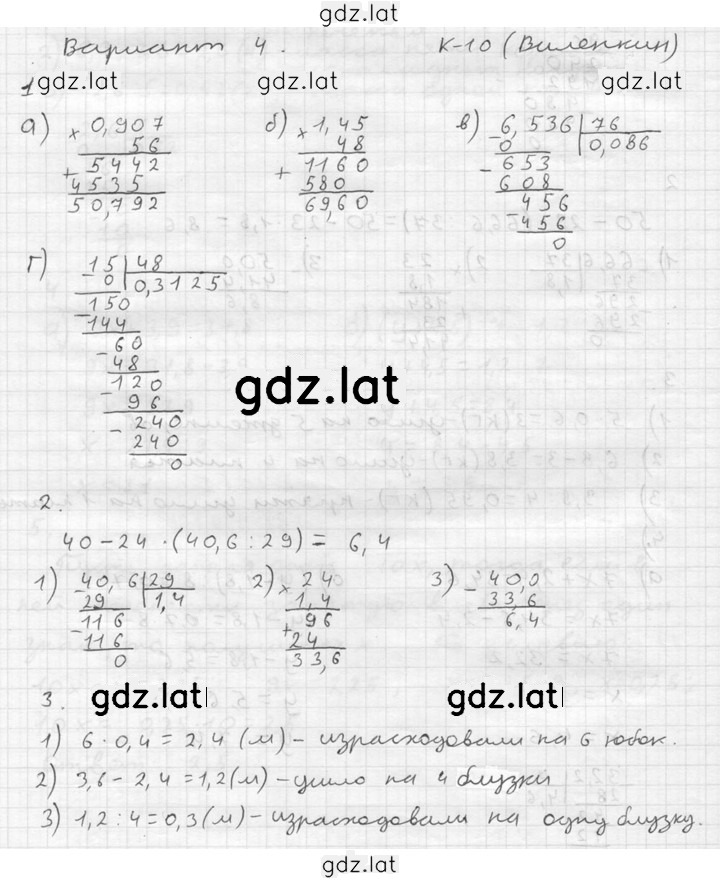 gdz.lat
Вариант 4. К-10 (Виленкин)
gdz.lat gdz.lat gdz.lat
1.
а) × 0,907 б) × 1,45 в) - 6,536 | 76
56 48 0 0,086
+ 5442 + 1160 - 653
4535 580 608
50,792 69,60 - 456
456
0
г) - 15 | 48
0 0,3125
- 150
144
- 60
48
- 120
96
- 240
240
0
gdz.lat
2.
40 - 24 · (40,6 : 29) = 6,4
1) - 40,6 | 29 2) × 24 3) - 40,0
29 1,4 1,4 33,6
- 116 + 96 6,4
116 24
0 33,6
3. gdz.lat gdz.lat
1) 6 · 0,4 = 2,4 (м) - израсходовали на 6 юбок.
2) 3,6 - 2,4 = 1,2 (м) - ушло на 4 блузки
3) 1,2 : 4 = 0,3 (м) - израсходовали на одну блузку.
gdz.lat